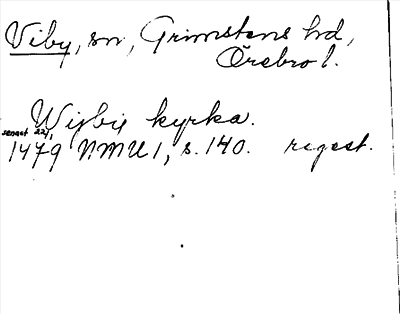 Viby, sn, Grimstens hd,
Örebro l.
Wisby kyrka.
senast 22/1
1479 NMU 1, s. 140. regest.